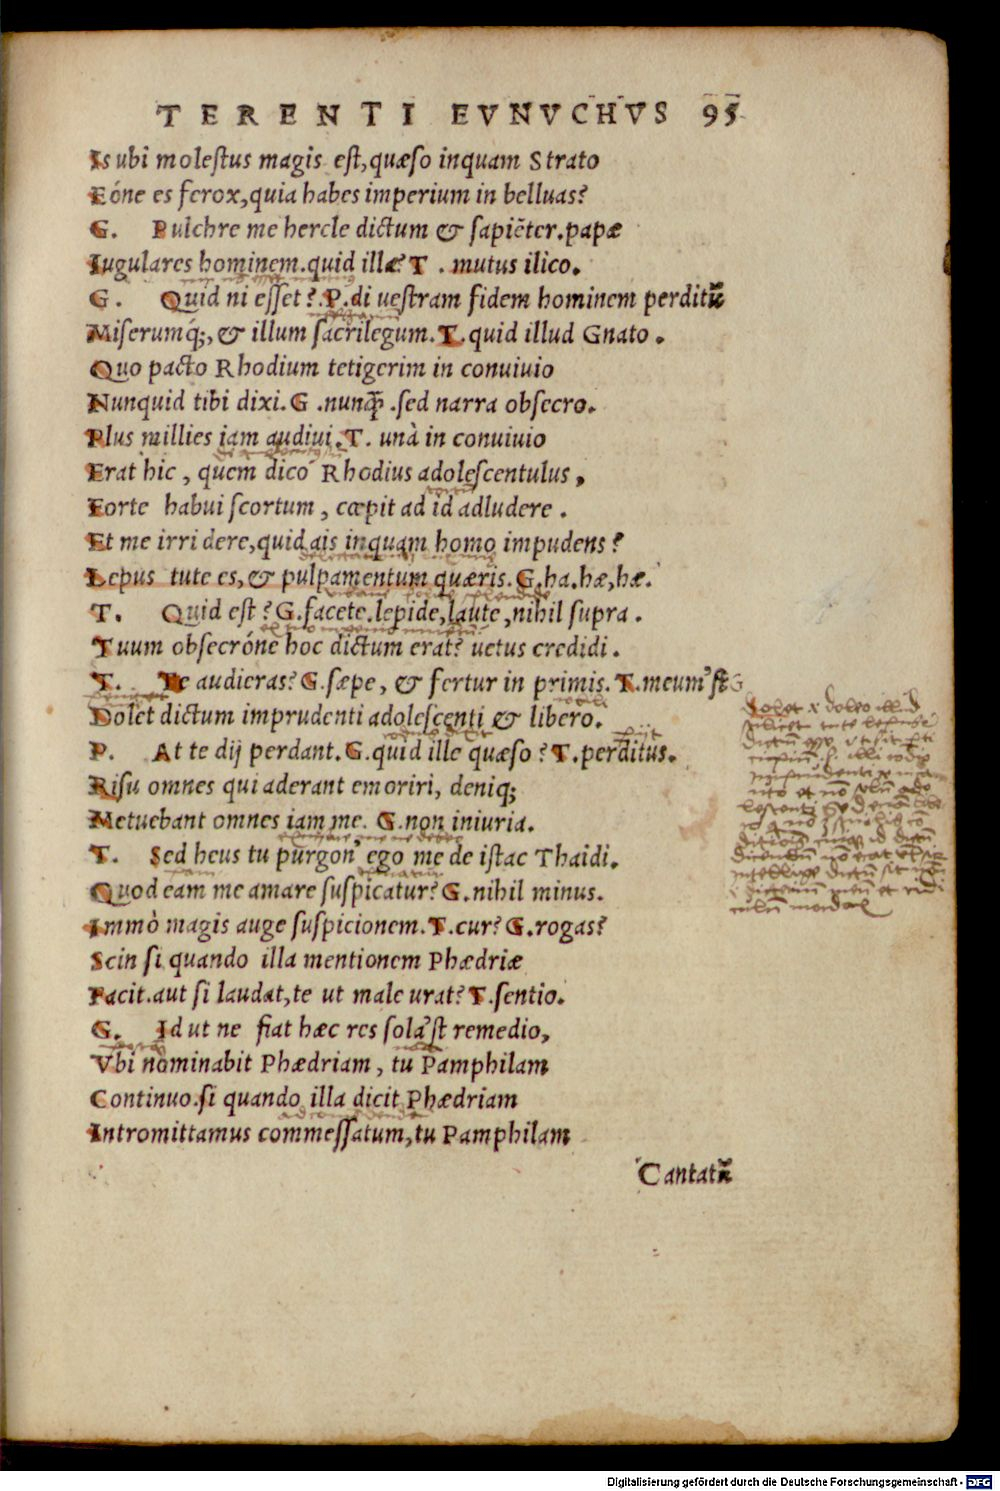 TERENTI EVNVCHVS 95
Is ubi molestus magis est, quæso inquam Strato
Eóne es ferox, quia habes imperium in belluas?
G. Pulchre me hercle dictum & sapiẽter. papæ
Iugulares hominem. quid illæ? T. mutus ilico.
G. Quid ni esset? P. di uestram fidem hominem perditũ
Miserumq́;, & illum sacrilegum. T. quid illud Gnato.
Quo pacto Rhodium tetigerim in conuiuio
Nunquid tibi dixi. G. nunq̃. sed narra obsecro.
Plus millies iam audiui. T. unà in conuiuio
Erat hic, quem dico Rhodius adolescentulus,
Forte habui scortum, cœpit ad id adludere.
Et me irridere, quid ais inquam homo impudens?
Lepus tute es, & pulpamentum quæris. G. ha, hæ, hæ.
T. Quid est? G. facete. lepide, laute, nihil supra.
Tuum obsecróne hoc dictum erat? uetus credidi.
T. Te audieras? G. sæpe, & fertur in primis. T. meum'st
Dolet dictum imprudenti adolescenti & libero.
P. At te dij perdant. G. quid ille quæso? T. perditus.
Risu omnes qui aderant emoriri, deniq;
Metuebant omnes iam me. G. non iniuria.
T. Sed heus tu purgon' ego me de istac Thaidi.
Quod eam me amare suspicatur? G. nihil minus.
Immò magis auge suspicionem. T. cur? G. rogas?
Scin si quando illa mentionem Phædriæ
Facit. aut si laudat, te ut male urat? T. sentio.
G. Id ut ne fiat hæc res sola'st remedio,
Vbi nominabit Phædriam, tu Pamphilam
Continuo. si quando illa dicit Phædriam
Intromittamus commessatum, tu Pamphilam
Cantatũ
Digitalisierung gefördert durch die Deutsche Forschungsgemeinschaft - DFG